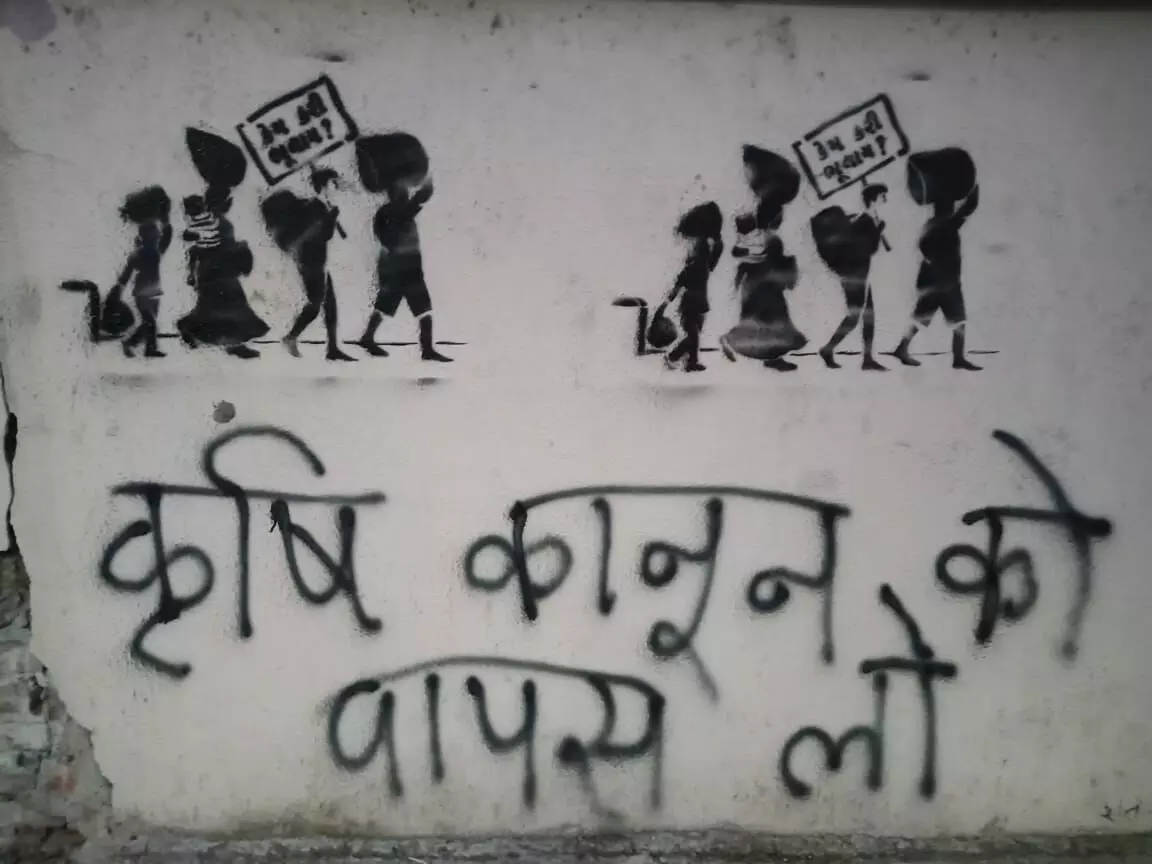 કેમ કરી
ભૂલાય?
કેમ કરી
ભૂલાય?
कृषि कानून को
वापस लो